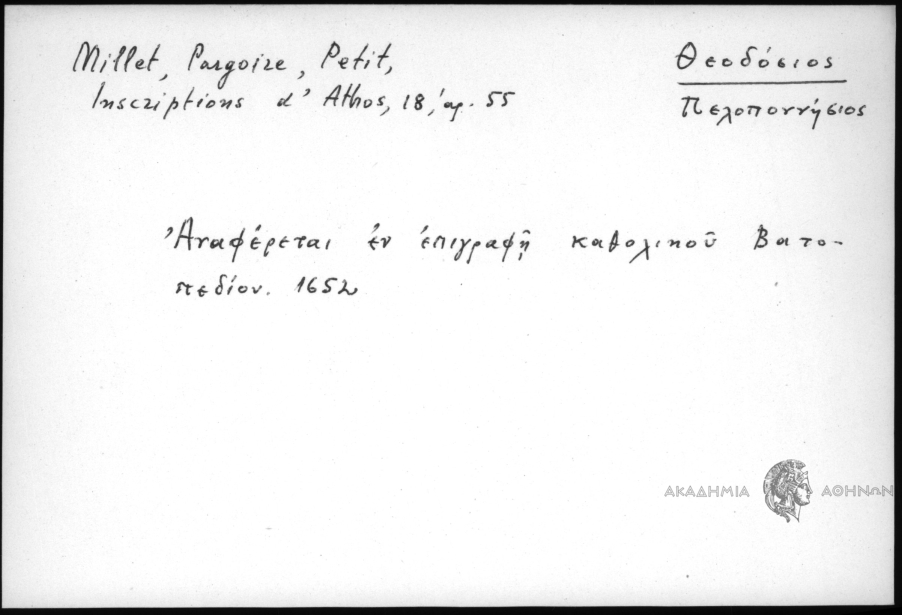 Millet, Pargoire, Petit,
Inscriptions d' Athos, 18, ἀρ. 55
Θεοδόσιος
Πελοποννήσιος
Ἀναφέρεται ἐν ἐπιγραφῇ καθολικοῦ Βατο-
πεδίου. 1652
ΑΚΑΔΗΜΙΑ ΑΘΗΝΩΝ